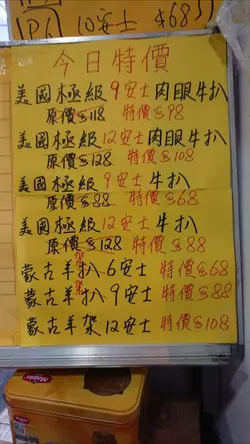 10安士 $68
今日特價
美國極級9安士肉眼牛扒
原價$118 特價$98
美國極級12安士肉眼牛扒
原價$128 特價$108
美國極級9安士牛扒
原價$88 特價$68
美國極級12安士牛扒
原價$128 特價$88
蒙古羊架扒6安士 特價$68
蒙古羊架扒9安士 特價$88
蒙古羊架12安士 特價$108